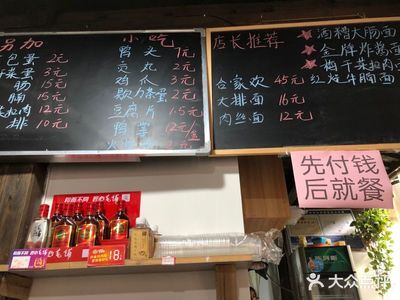 另加
包蛋 2元
菜蛋 3元
肠 15元
腩 15元
12元
排 10元
小吃
鸭头 7元
贡丸 2元
鸡爪 3元
2元
豆腐片 1.5元
鸭掌 12元/盒
店长推荐
合家欢 45元
大排面 16元
肉丝面 12元
酒糟大肠面
金牌炸鸡面
梅干菜扣肉面
红烧牛腩面
先付钱
后就餐
18元
大众点评